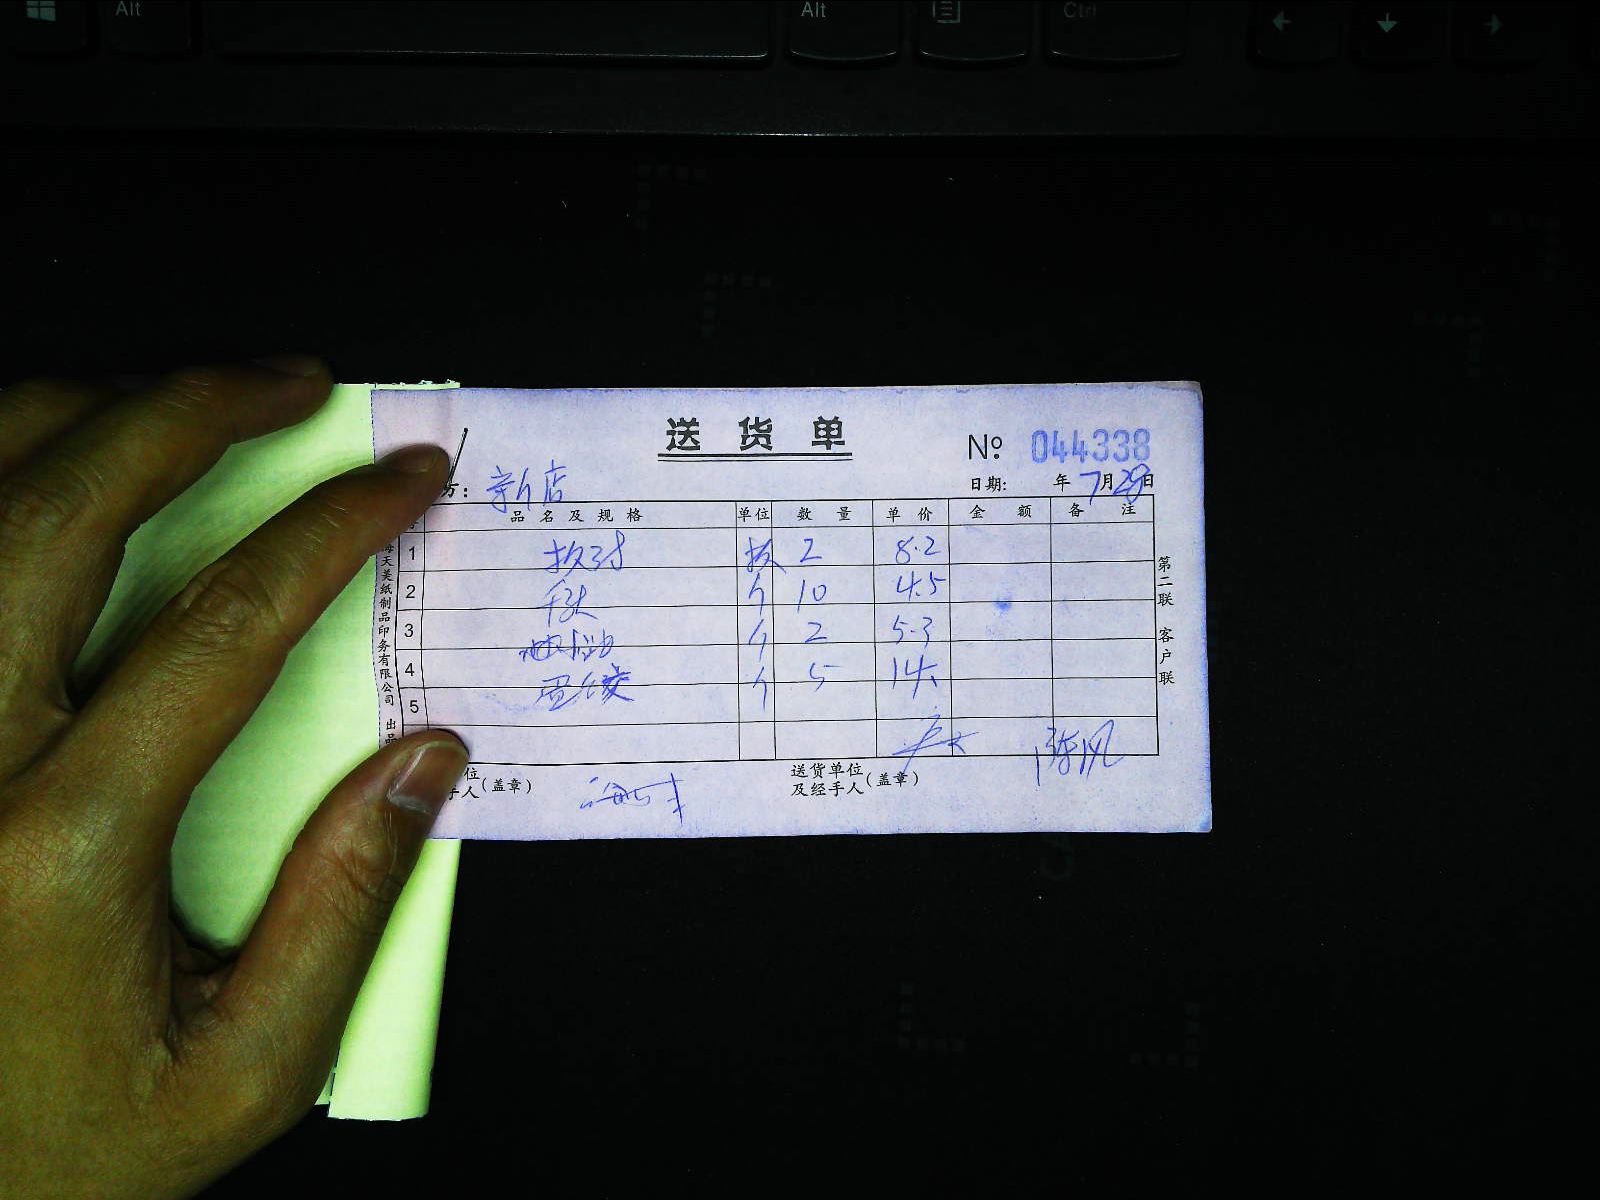 Alt
Alt
Ctrl
送货单
№ 044338
方：新店
日期： 年7月28日
品名及规格 单位 数量 单价 金额 备注
1 板 2 8.2
2 个 10 4.5
3 个 2 5.3
4 个 5 14.
5
海天美纸制品印务有限公司 出品
第二联 客户联
位
手人（盖章）
送货单位
及经手人（盖章）